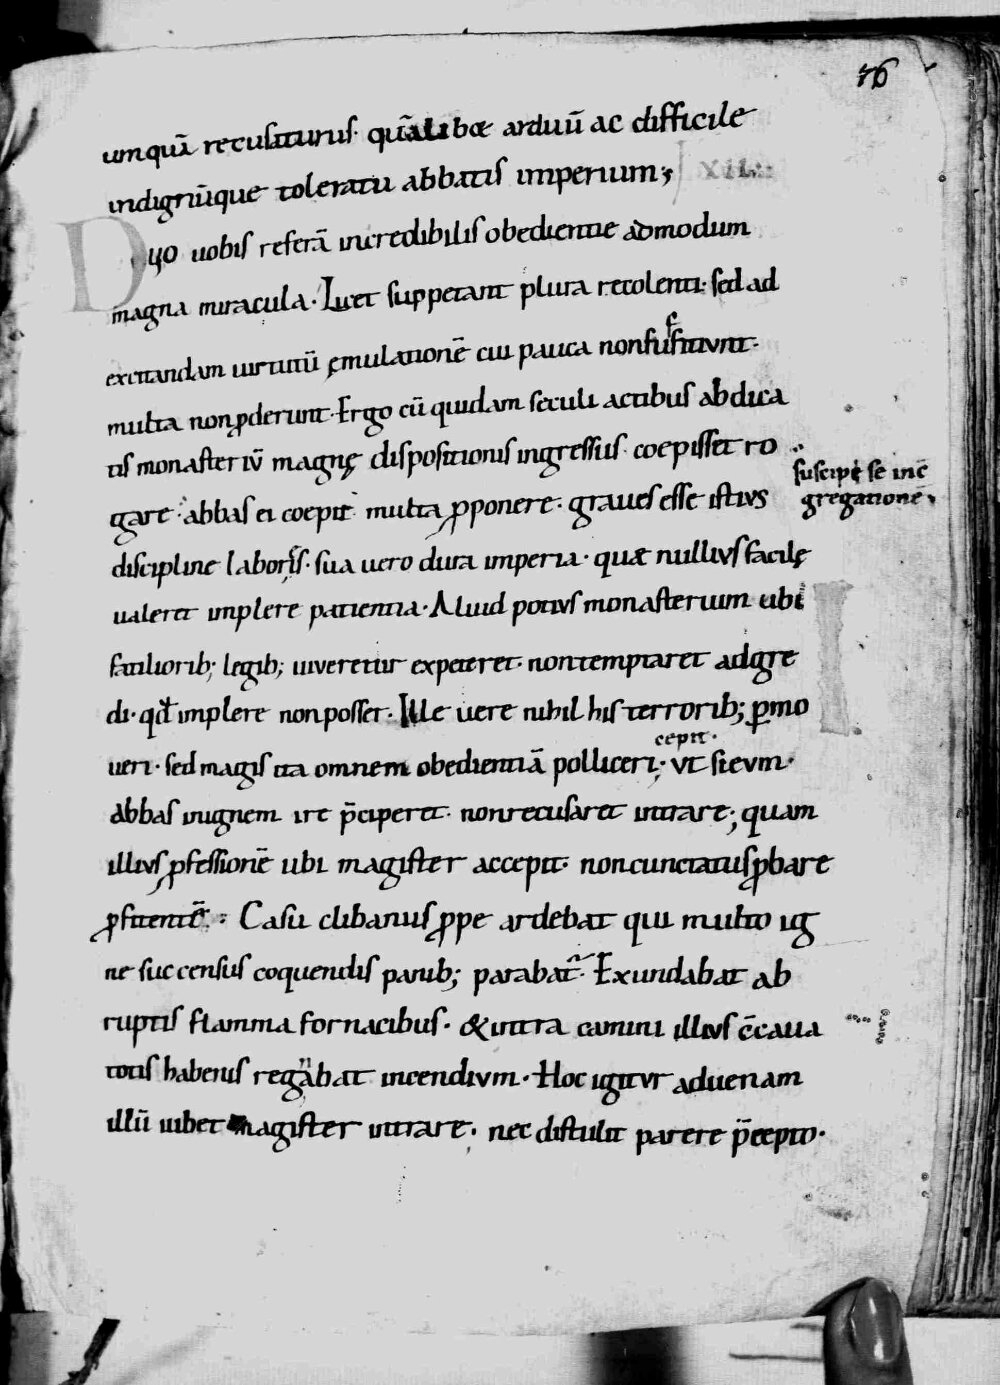 76
umquā recusaturus. quālibæ arduū ac difficile
indignūque toleratu abbatis imperium; XII.
Duo uobis referā incredibilis obedientie admodum
magna miracula. Licet suppetant plura recolenti. sed ad
excitandam uirtutū ęmulationē cui pauca non sufficiunt.
multa non ꝓderunt. Ergo cū quidam seculi actibus abdica
tis monasteriū magnę dispositionis ingressus coepisset ro
suscipi se incō
gregatione.
gare. abbas ei coepit multa ꝓponere. graues esse istius
discipline labores. sua uero dura imperia. quæ nullius facile
ualeret implere patientia. Aliud potius monasterium ubi
faciliorib; legib; uiueretur expeteret. non temptaret adgre
di. qđ implere non posset. Ille uere nihil his terrorib; ꝑmo
cepit.
ueri. sed magis ita omnem obedientiā polliceri. ut si eum.
abbas in ignem ire p̄ciperet. non recusaret intrare; quam
illius ꝓfessionē ubi magister accepit. non cunctatus ꝓbare
ꝓfitentē. Casu clibanus ꝓpe ardebat qui multo ig
ne succensus coquendis panib; parabat̄. Exundabat ab
ruptis flamma fornacibus. & intra camini illius c̄caua
totis habenis regnabat incendium. Hoc igitur aduenam
illū iubet magister intrare. nec distulit parere p̄cepto.